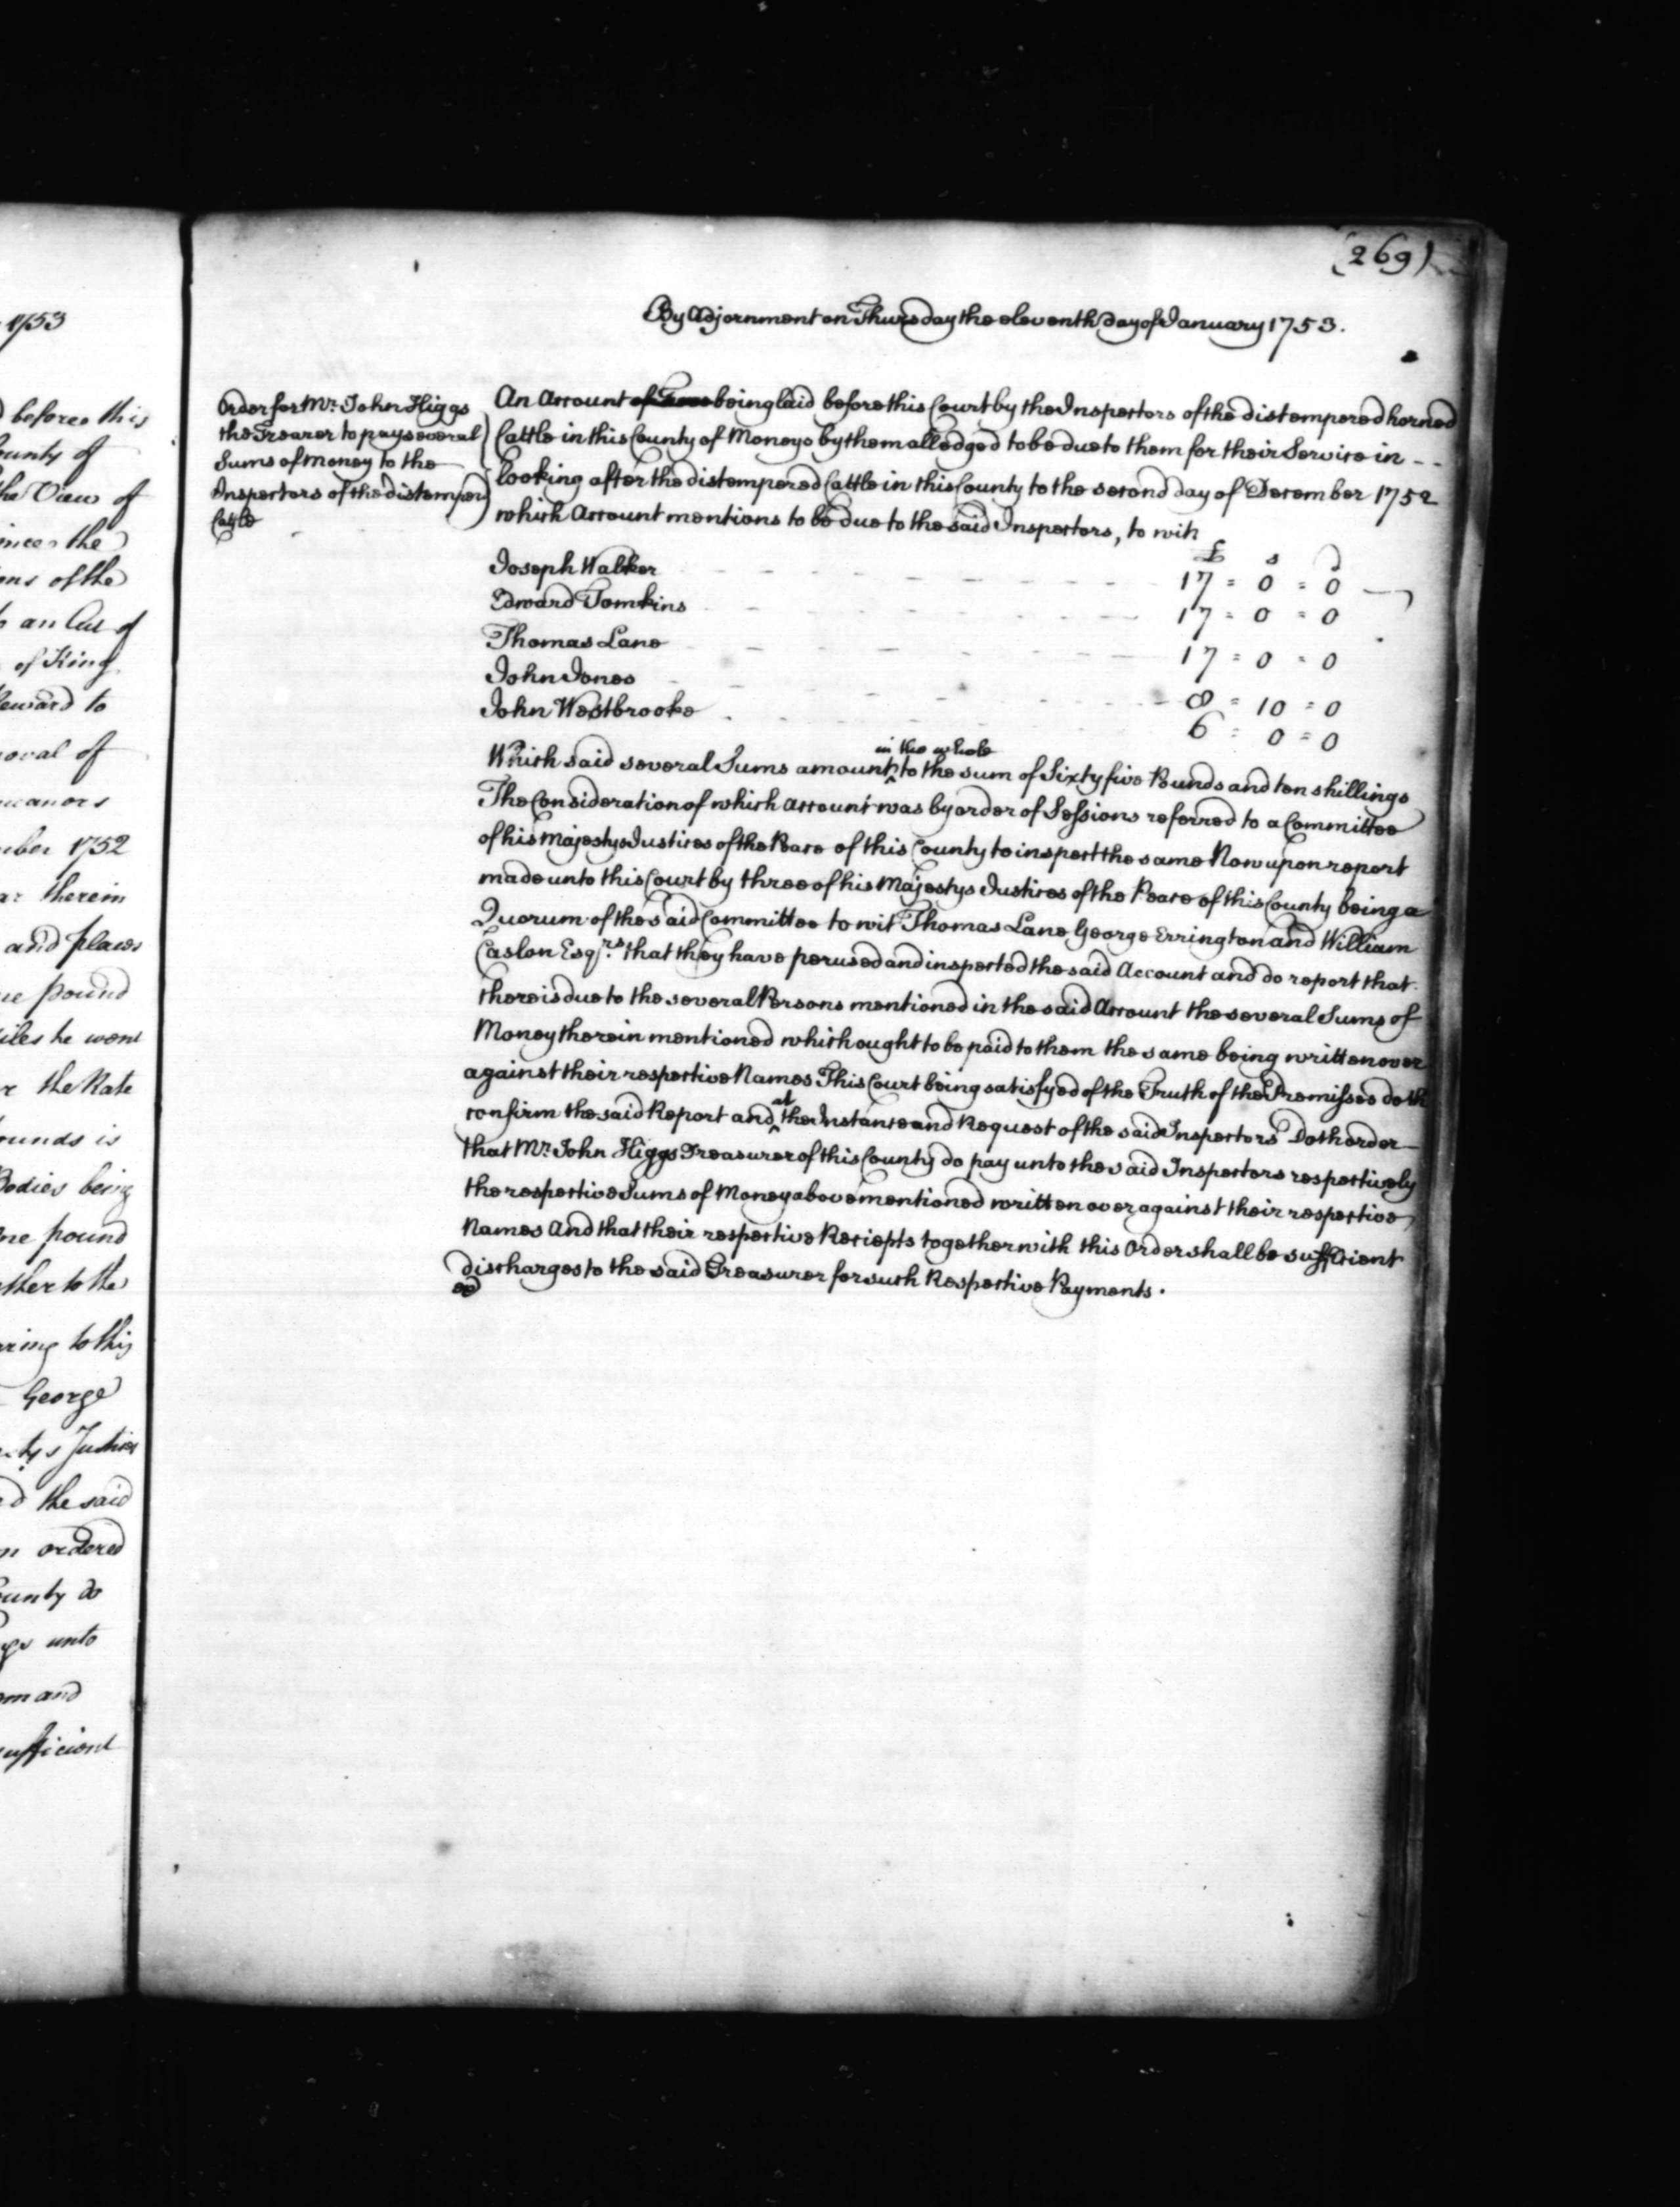 1753
before this
ounty of
the View of
ince the
ons of the
an Act of
of King
Reward to
moval of
meanors
mber 1752
therein
and places
ne pound
iles he went
the Rate
ounds is
Bodies being
One pound
ther to the
aring to this
George
tys Justices
ed the said
ordered
County do
unto
and
sufficient
(269)
By Adjornment on Thursday the eleventh Day of January 1753.
Order for Mr. John Higgs
the Trearer to pay several
Sums of money to the
Inspectors of the distemper'd
Cattle
An Account of being laid before this Court by the Inspectors of the distempered horned
Cattle in this County of Moneys by them alledged to be due to them for their Service in - -
looking after the distempered Cattle in this County to the second day of December 1752
which Account mentions to be due to the said Inspectors, to with
£ s d
Joseph Walker 17 = 0 = 0
Edward Tomkins 17 = 0 = 0
Thomas Lane 17 = 0 = 0
John Jones 8 = 10 = 0
John Westbrooke 6 = 0 = 0
Which said several Sums amount in the whole to the sum of Sixty five Pounds and ten shillings
The Consideration of which Account was by order of Sessions referred to a Committee
of his Majestys Justices of the Peace of this County to inspect the same Now upon report
made unto this Court by three of his Majestys Justices of the Peace of this County being a
Quorum of the said Committee to wit Thomas Lane George Errington and William
Caslon Esqrs. that they have perused and inspected the said Account and do report that
there is due to the several Persons mentioned in the said Account the several Sums of
Money therein mentioned which ought to be paid to them the same being written over
against their respective Names This Court being satisfyed of the Truth of the Premisses doth
confirm the said Report and at the Instance and Request of the said Inspectors Doth order
that Mr. John Higgs Treasurer of this County do pay unto the said Inspectors respectively
the respective Sums of Money above mentioned written over against their respective
Names And that their respective Reciepts together with this Order shall be sufficient
discharges to the said Treasurer for such Respective Payments.